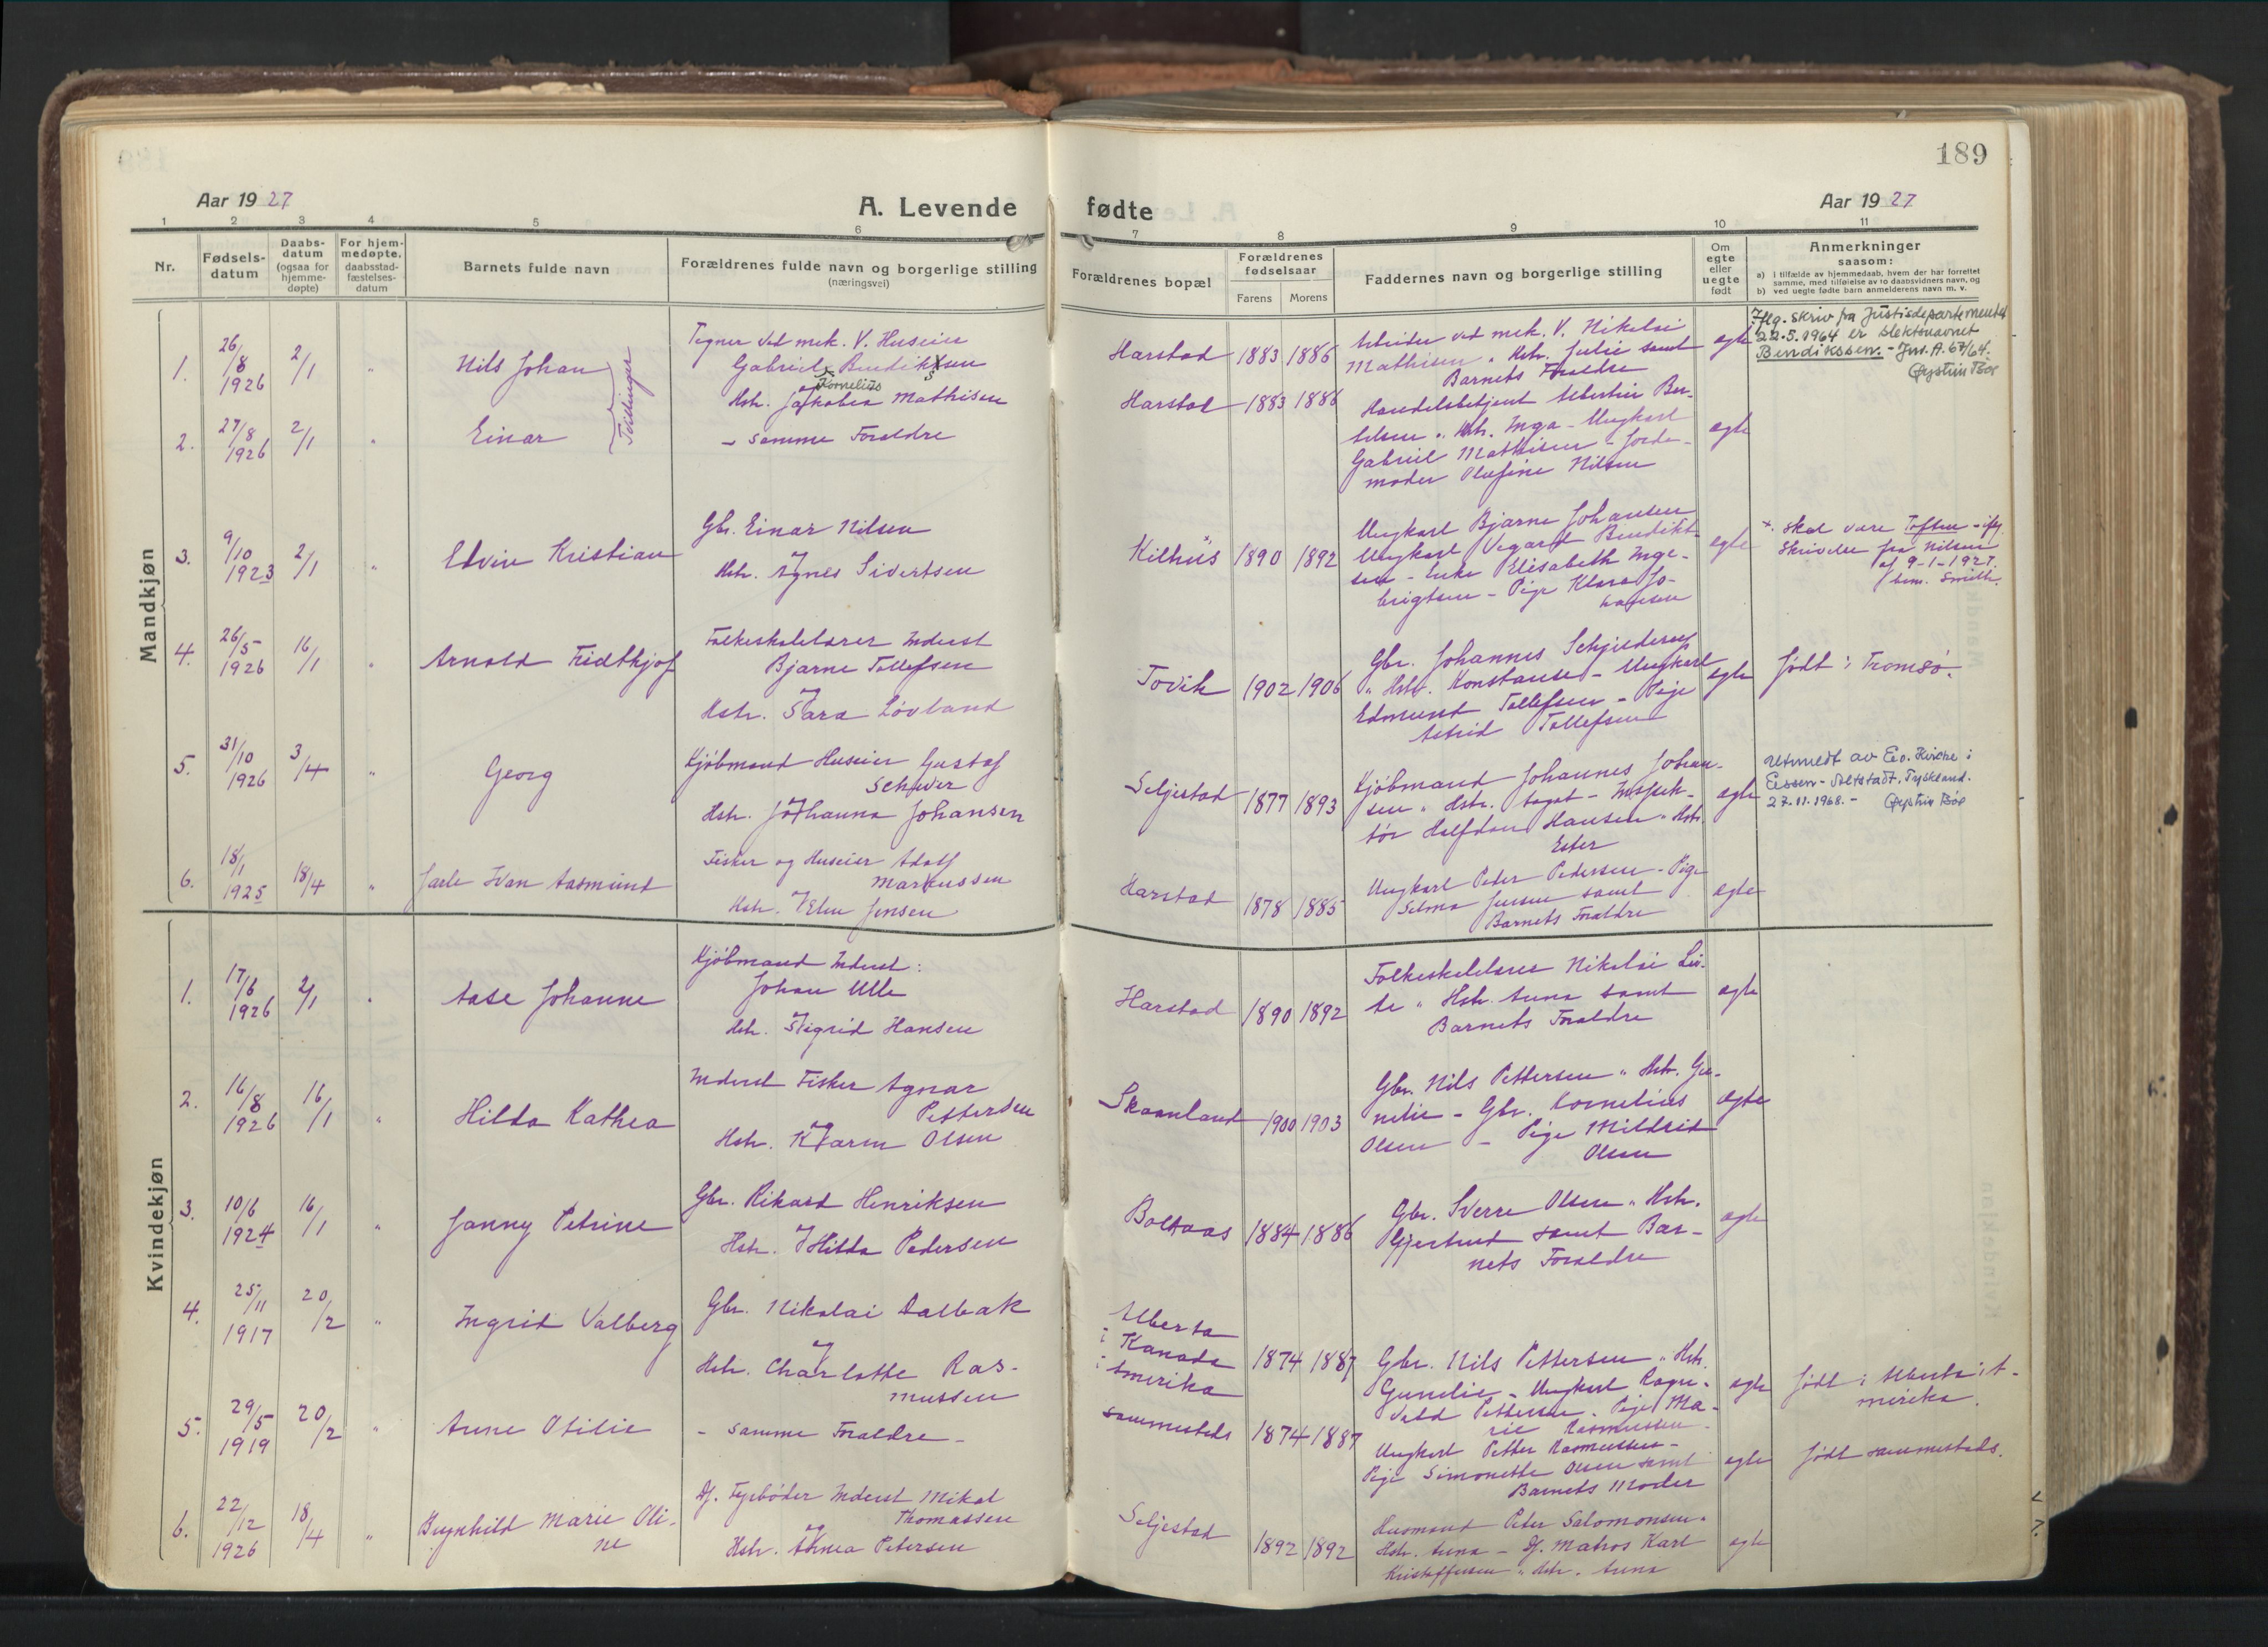 189
Aar 1927
A. Levende
fødte
Aar 1927
1 2 3 4 5 6 7 8 9 10 11
Nr.
Fødsels-
datum
Daabs-
datum
(ogsaa for
hjemme-
døpte)
For hjem-
medøpte.
daabsstad-
fæstelses-
datum
Barnets fulde navn
Forældrenes fulde navn og borgerlige stilling
(næringsvei)
Forældrenes bopæl
Forældrenes
fødselsaar
Farens Morens
Faddernes navn og borgerlige stilling
Om
egte
eller
uegte
født
Anmerkninger
saasom:
a) i tilfælde av hjemmedaab, hvem der har forrettet
samme, med tilføielse av to daabsvidners navn, og
b) ved uegte fødte barn anmelderens navn m. v.
Mandkjøn
1. 26/8 1926 2/1
Nils Johan
Tvillinger
Tegner ved mek. V. Huseier
Gabriel Bendiksen
s
Kornelius
Hstr. Jakobea Mathisen
Harstad 1883 1886
Arbeider ved mek. V. Nikolai
Mathisen " Hstr. Julie samt
Barnets Foreldre
egte
Iflg. skriv fra Justisdepartementet
22.5.1964 er slektsnavnet
Bendikssen. - Jnr. A. 67/64.
Øystein Bøe
2. 27/8 1926 2/1 "
Einar
- samme Foreldre
Harstad 1883 1886
Handelsbetjent Albertin Ber-
telsen " Hstr. Inga - Ungkarl
Gabriel Mathisen - Jorde-
moder Olufine Nilsen
egte
3. 9/10 1923 2/1 "
Edvin Kristian
Gbr. Einar Nilsen
og
Hstr. Agnes Sivertsen
Kilhus 1890 1892
Ungkarl Bjarne Johansen
Ungkarl Vegard Benedikt-
sen - Enke Elisabeth Inge-
brigtsen - Pige Klara Jo-
hansen
egte
+. skal være Toften - ifg.
Skrivelse fra Nilsen
af 9-1-1927.
4. 26/5 1926 16/1 "
Arnold Fridthjof
Folkeskolelærer Inderst
Bjarne Tollefsen
og
Hstr. Sara Løvland
Tovik 1902 1906
Gbr. Johannes Schjelderup
" Hstr. Konstanse - Ungkarl
Edmund Tollefsen - Pige
Astrid Tollefsen
egte
født i Tromsø.
5. 31/10 1926 3/4 "
Georg
Kjøbmand Huseier Gustaf
Schwer
og
Hstr. Johanna Johansen
Seljestad 1877 1893
Kjøbmand Johannes Johan-
sen " Hstr. Aagot - Inspek-
tør Halfdan Hansen " Hstr.
Ester
egte
Utmeldt av Ev. Kirche i
Essen-Altstadt, Tyskland.
27.11.1968. - Øystein Bøe
6. 18/1 1925 18/4 "
Jarle Ivan Aasmund
Fisker og Huseier Adolf
Markussen
og
Hstr. Elen Jensen
Harstad 1878 1885
Ungkarl Peder Pedersen - Pige
Selma Jensen samt
Barnets Foreldre
egte
Kvindekjøn
1. 17/6 1926 2/1 "
Aase Johanne
Kjøbmand Inderst:
Johan Ulle
og
Hstr. Sigrid Hansen
Harstad 1890 1892
Folkeskolelærer Nikolai Lin-
te " Hstr. Anna samt
Barnets Foreldre
egte
2. 16/8 1926 16/1 "
Hilda Kathea
Inderst Fisker Agnar
Pettersen
og
Hstr. Karen Olsen
Skaanland 1900 1903
Gbr. Nils Pettersen " Hstr. Gu-
nelie - Gbr. Kornelius
Olsen - Pige Mildrid
Olsen
egte
3. 10/6 1924 16/1 "
Janny Petrine
Gbr. Rikard Henriksen
og
Hstr. Hilda Pedersen
Boltaas 1884 1886
Gbr. Sverre Olsen " Hstr.
Gjertrud samt Bar-
nets Foreldre
egte
4. 25/11 1917 20/2 "
Ingrid Valberg
Gbr. Nikolai Dalbak
og
Hstr. Charlotte Ras-
mussen
Alberta
i Kanada
i Amerika
1874 1887
Gbr. Nils Pettersen " Hstr.
Gunelie - Ungkarl Ragn-
vald Pettersen - Pige Ma-
rie Rasmussen
egte
født i Alberta i A-
merika.
5. 29/5 1919 20/2 "
Anne Otilie
- samme Foreldre -
sammesteds 1874 1887
Ungkarl Petter Rasmussen -
Pige Simonette Olsen samt
Barnets Moder
egte
født sammesteds.
6. 22/12 1926 18/4 "
Brynhild Marie Oli-
ne
Df. Fyrbøder Inderst Mikal
Thomassen
og
Hstr. Annea Petersen
Seljestad 1892 1892
Husmand Peter Salomonsen "
Hstr. Anna - Df. Matros Karl
Kristoffersen " Hstr. Anna
egte